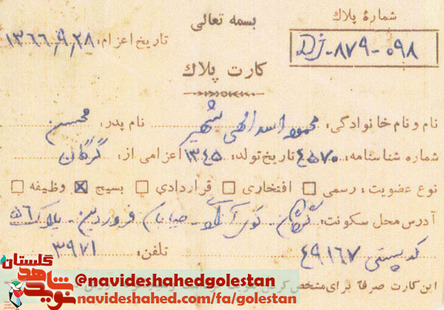 بسمه تعالی
شماره پلاك
تاریخ اعزام: ۱۳۶۶/۹/۲۸
۰۹۸-۸۷۹-
کارت پلاك
نام و نام خانوادگی: محمود اسد الهی شهیر نام پدر: محسن
شماره شناسنامه: ۴۵۷۰ تاریخ تولد: ۱۳۴۵ اعزامی از: گرگان
نوع عضویت: رسمی افتخاری قراردادی بسیج وظیفه
آدرس محل سکونت: گرگان - کوی - خیابان فروردین - پلاک ۵۶
کد پستی ۴۹۱۶۷ تلفن: ۳۹۷۱
این کارت صرفا برای مشخص کردن
گلستان
نوید شاهد
@navideshahedgolestan
navideshahed.com/fa/golestan